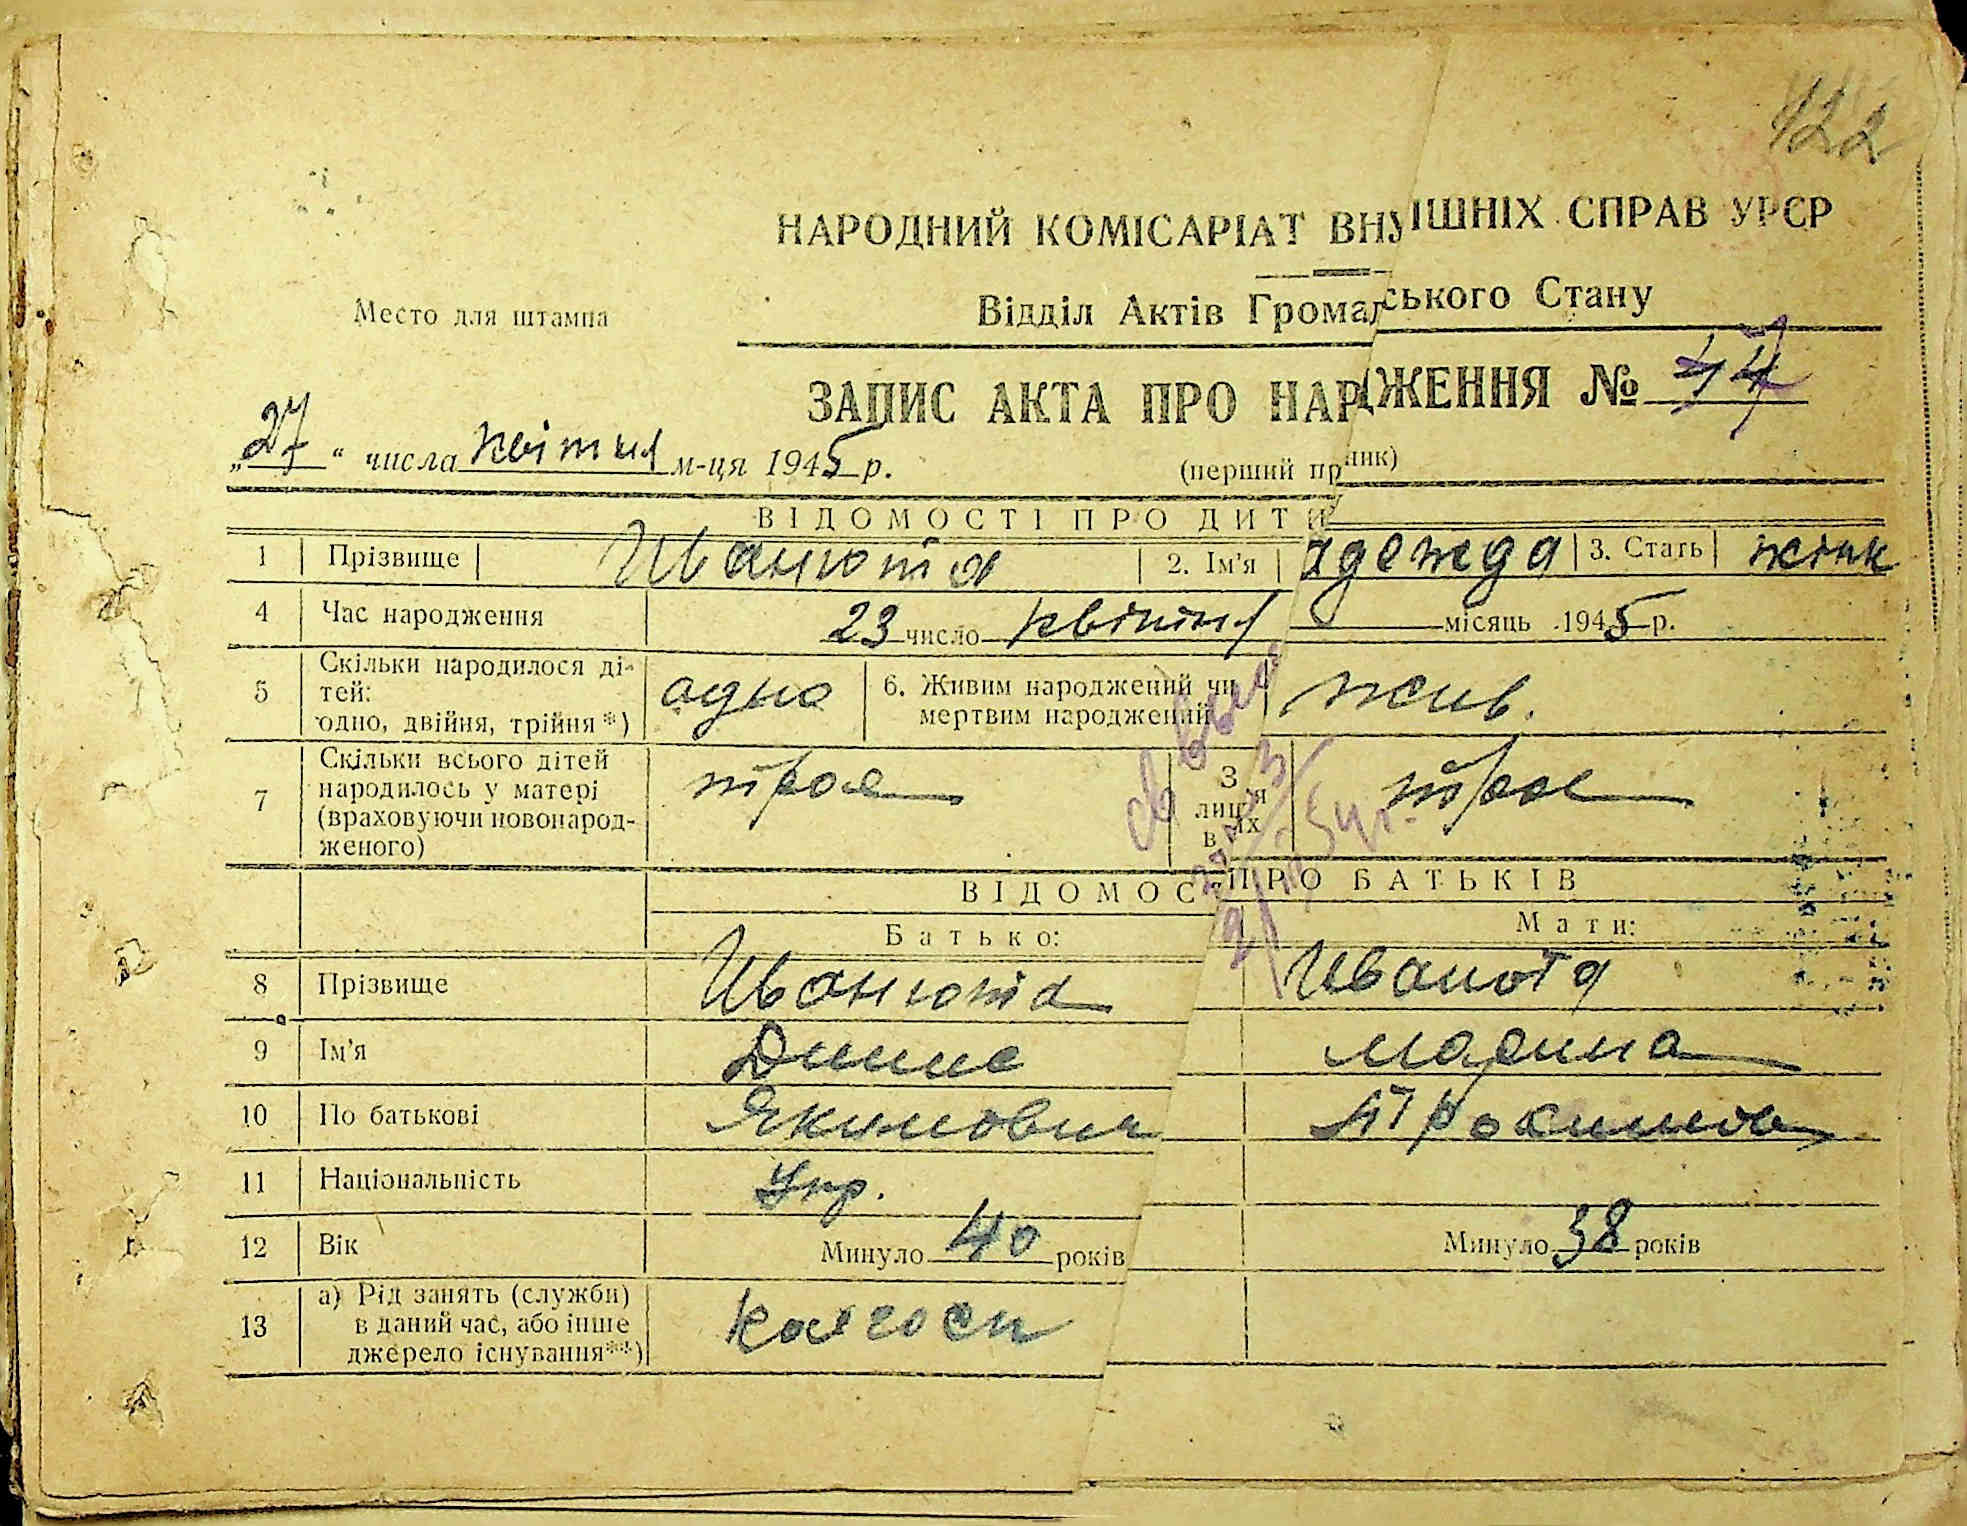 122
НАРОДНИЙ КОМІСАРІАТ ВНУІШНІХ СПРАВ УРСР
Место для штампа
Відділ Актів Громадського Стану
ЗАПИС АКТА ПРО НАРДЖЕННЯ № 47
„27“ числа квітня м-ця 1945 р.
(перший пр ник)
ВІДОМОСТІ ПРО ДИТИ
1 Прізвище Иванюта 2. Ім'я адежда 3. Стать жінк
4 Час народження 23 число квітня місяць 1945 р.
5 Скільки народилося дітей: одно, двійня, трійня*) одно 6. Живим народжений чи мертвим народжений жив.
7 Скільки всього дітей народилось у матері (враховуючи новонародженого) троє З лиц я в их троє
ВІДОМОС ПРО БАТЬКІВ
Батько: Мати:
8 Прізвище Иванюта Иванюта
9 Ім'я Динис Марина
10 По батькові Якимович
11 Національність Укр.
12 Вік Минуло 40 років Минуло 38 років
13 а) Рід занять (служби) в даний час, або інше джерело існування**) Колгосп